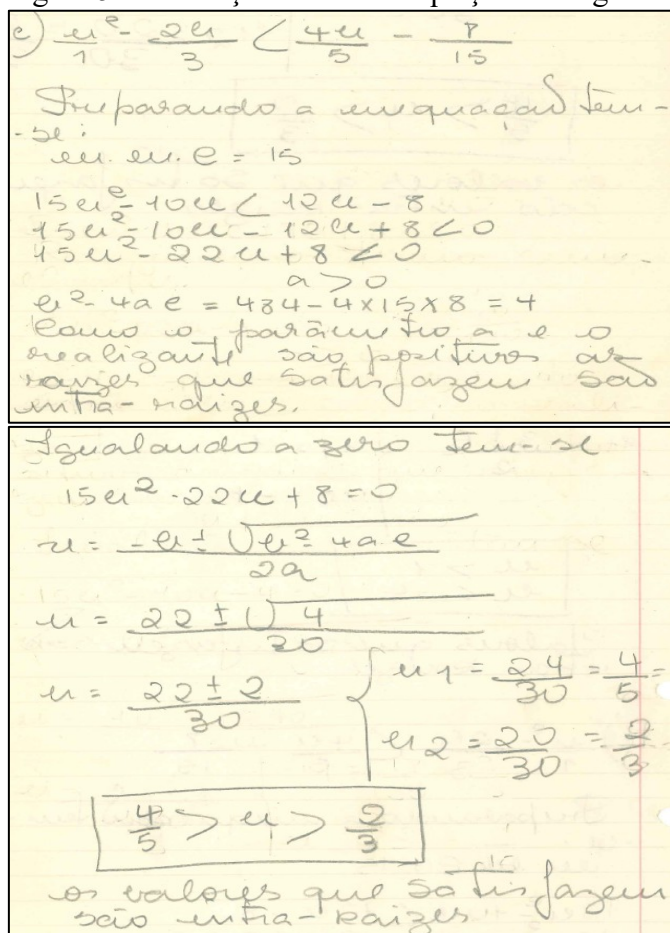 c) x²/1 - 2x/3 < 4x/5 - 8/15
Preparando a inequação tem-
-se:
m.m.c = 15
15x² - 10x < 12x - 8
15x² - 10x - 12x + 8 < 0
15x² - 22x + 8 < 0
a > 0
b² - 4ac = 484 - 4x15x8 = 4
Como o parâmetro a e o
realizante são positivos as
raizes que satisfazem são
intra-raizes.
Igualando a zero tem-se
15x² - 22x + 8 = 0
x = (-b ± √(b² - 4ac))/2a
x = (22 ± √4)/30
x = (22 ± 2)/30
x1 = 24/30 = 4/5
x2 = 20/30 = 2/3
4/5 > x > 2/3
os valores que satisfazem
são intra-raizes